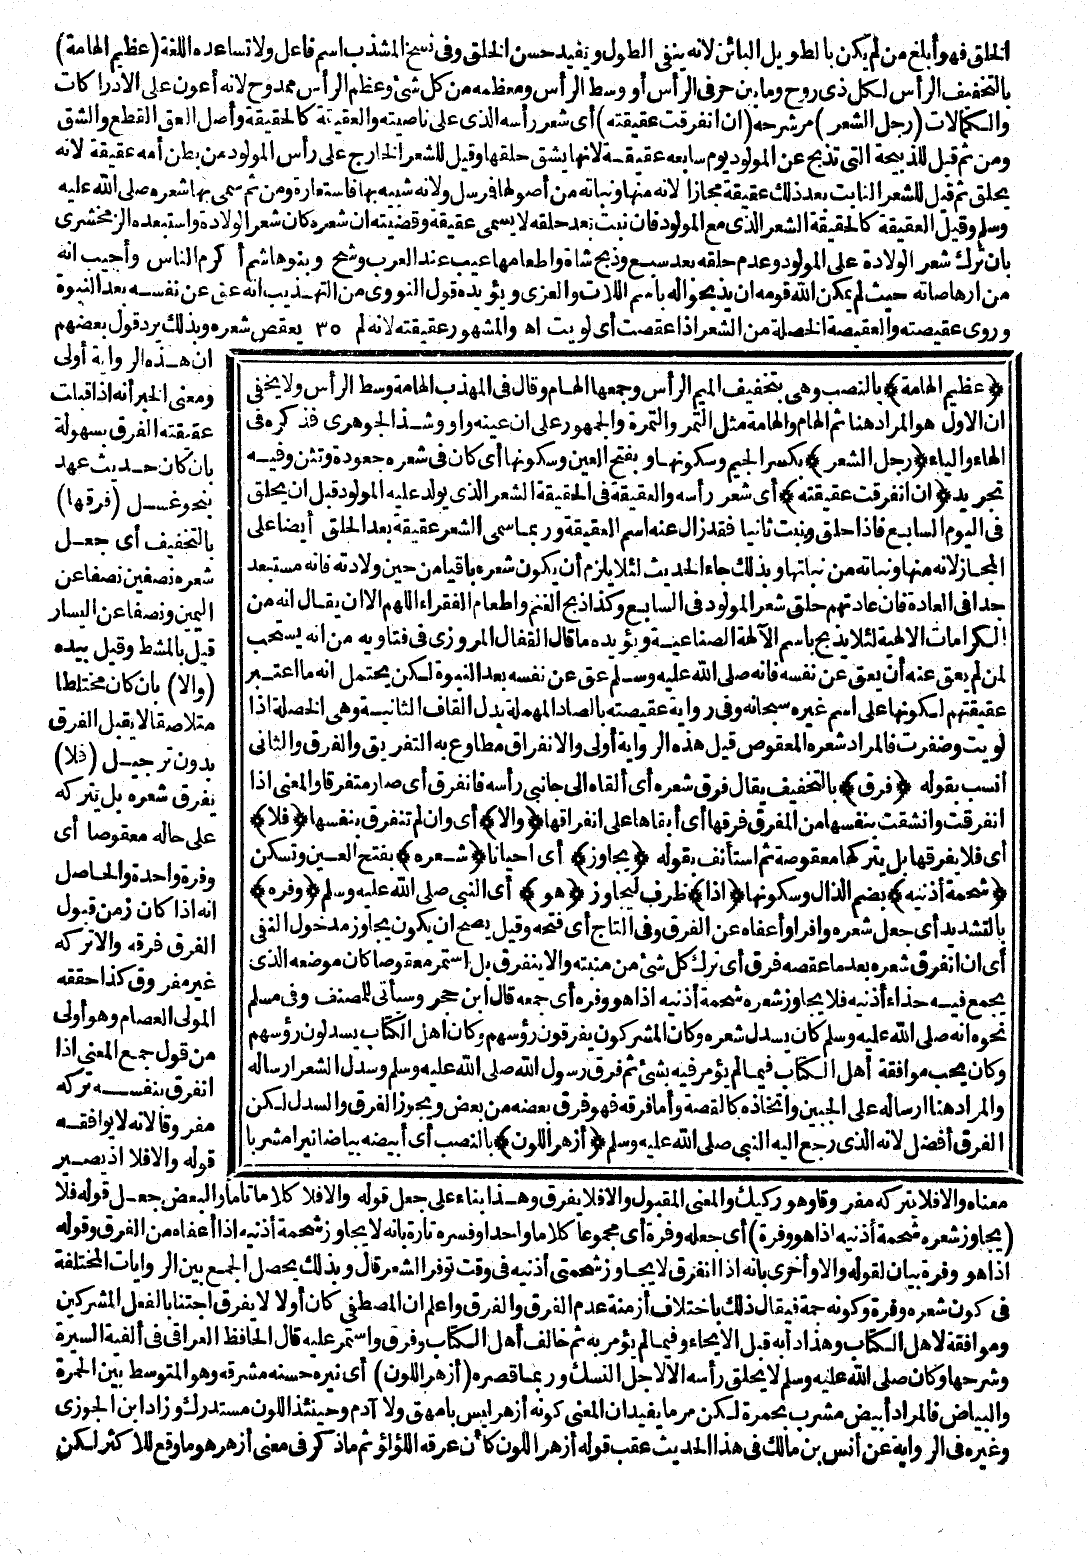 الخلق فهو أبلغ من لم يكن بالطويل البائن لانه ينفي الطول ويفيد حسن الخلق وفى نسخ المشذب اسم فاعل ولا تساعده اللغة (عظيم الهامة)
بالتخفيف الرأس لكل ذى روح وما بين حرفى الرأس أو وسط الرأس ومعظمه من كل شئ وعظم الرأس ممدوح لانه أعون على الادراكات
والكمالات (رجل الشعر) مر شرحه (ان انفرقت عقيقته) أى شعر رأسه الذى على ناصيته والعقيقة كالحقيقة وأصل العق القطع والشق
ومن ثم قيل للذبيحة التى تذبح عن المولود يوم سابعه عقيقة لانها يشق حلقها وقيل للشعر الخارج على رأس المولود من بطن أمه عقيقة لانه
يحلق ثم قيل للشعر النابت بعد ذلك عقيقة مجازا لانه منها ونباته من أصولها فرسل ولانه شبيه بها فاستعارة ومن ثم سمى بها شعره صلى الله عليه
وسلم وقيل العقيقة كالحقيقة الشعر الذى مع المولود فان نبت بعد حلقه لا يسمى عقيقة وقضيته ان شعره كان شعر الولادة واستبعده الزمخشرى
بان ترك شعر الولادة على المولود وعدم حلقه بعد سبع وذبح شاة واطعامها عيب عند العرب وشح وبنوهاشم أكرم الناس وأجيب انه
من ارهاصاته حيث لم يمكن الله قومه ان يذبحوا له باسم اللات والعزى ويؤيده قول النووى من التهذيب انه عق عن نفسه بعد النبوة
وروى عقيصته والعقيصة الخصلة من الشعر اذا عقصت أى لويت اه والمشهور عقيقته لانه لم ٣٥ يعقص شعره وبذلك يرد قول بعضهم
ان هذه الرواية أولى
ومعنى الخبر أنه اذا قبلت
عقيقته الفرق بسهولة
بان كان حديث عهد
بنحو غسل (فرقها)
بالتخفيف أى جعل
شعره نصفين نصفا عن
اليمين ونصفا عن اليسار
قيل بالمشط وقيل بيده
(والا) بان كان مختلطا
متلاصقا لا يقبل الفرق
بدون ترجيل (فلا)
يفرق شعره بل يتركه
على حاله معقوصا أى
وفرة واحدة والحاصل
انه اذا كان زمن قبول
الفرق فرقه والا تركه
غير مفروق كذا حققه
المولى العصام وهو أولى
من قول جمع المعنى اذا
انفرق بنفسه تركه
مفروقا لانه لا يوافقه
قوله والا فلا اذ يصير
﴿عظيم الهامة﴾ بالنصب وهى بتخفيف الميم الرأس وجمعها الهام وقال فى المهذب الهامة وسط الرأس ولا يخفى
ان الاول هو المراد هنا ثم الهام والهامة مثل التمر والتمرة والجمهور على ان عينه واو وشذ الجوهرى فذكره فى
الهاء والياء ﴿رجل الشعر﴾ بكسر الجيم وسكونها وبفتح العين وسكونها أى كان فى شعره جعودة وتثن وفيه
تجريد ﴿ان انفرقت عقيقته﴾ أى شعر رأسه والعقيقة فى الحقيقة الشعر الذى يولد عليه المولود قبل ان يحلق
فى اليوم السابع فاذا حلق ونبت ثانيا فقد زال عنه اسم العقيقة وربما سمى الشعر عقيقة بعد الحلق أيضا على
المجاز لانه منها ونباته من نباتها وبذلك جاء الحديث لئلا يلزم أن يكون شعره باقيا من حين ولادته فانه مستبعد
جدا فى العادة فان عادتهم حلق شعر المولود فى السابع وكذا ذبح الغنم واطعام الفقراء اللهم الا ان يقال انه من
الكرامات الالهية لئلا يذبح باسم الآلهة الصناعية ويؤيده ما قال القفال المروزى فى فتاويه من انه يستحب
لمن لم يعق عنه أن يعق عن نفسه فانه صلى الله عليه وسلم عق عن نفسه بعد النبوة لكن يحتمل انه ما اعتبر
عقيقتهم لكونها على اسم غيره سبحانه وفى رواية عقيصته بالصاد المهملة بدل القاف الثانية وهى الخصلة اذا
لويت وضفرت فالمراد شعره المعقوص قيل هذه الرواية أولى والانفراق مطاوع به التفريق والفرق والثانى
أنسب بقوله ﴿فرق﴾ بالتخفيف يقال فرق شعره أى ألقاه الى جانبى رأسه فانفرق أى صار متفرقا والمعنى اذا
انفرقت وانشقت بنفسها من المفرق فرقها أى أبقاها على انفراقها ﴿والا﴾ أى وان لم تنفرق بنفسها ﴿فلا﴾
أى فلا يفرقها بل يتركها معقوصة ثم استأنف بقوله ﴿يجاوز﴾ أى احيانا ﴿شعره﴾ بفتح العين وتسكن
﴿شحمة أذنيه﴾ بضم الذال وسكونها ﴿اذا﴾ ظرف ليجاوز ﴿هو﴾ أى النبى صلى الله عليه وسلم ﴿وفره﴾
بالتشديد أى جعل شعره وافرا وأعفاه عن الفرق وفى التاج أى فتحه وقيل يصح ان يكون يجاوز مدخول النفى
أى ان انفرق شعره بعد ما عقصه فرق أى ترك كل شئ من منبته والا ينفرق بل استمر معقوصا كان موضعه الذى
يجمع فيه حذاء أذنيه فلا يجاوز شعره شحمة أذنيه اذا هو وفره أى جمعه قال ابن حجر وسيأتى للمصنف وفى مسلم
نحوه انه صلى الله عليه وسلم كان يسدل شعره وكان المشركون يفرقون رؤسهم وكان اهل الكتاب يسدلون رؤسهم
وكان يحب موافقة أهل الكتاب فيما لم يؤمر فيه بشئ ثم فرق رسول الله صلى الله عليه وسلم وسدل الشعر ارساله
والمراد هنا ارساله على الجبين واتخاذه كالقصة وأما فرقه فهو فرق بعضه من بعض ويجوز الفرق والسدل لكن
الفرق أفضل لانه الذى رجع اليه النبى صلى الله عليه وسلم ﴿أزهر اللون﴾ بالنصب أى أبيضه بياضا نيرا مشربا
معناه والا فلا يتركه مفروقا وهو ركيك والمعنى المقبول والا فلا يفرق وهذا بناء على جعل قوله والا فلا كلاما تاما والبعض جعل قوله فلا
(يجاوز شعره شحمة أذنيه اذا هو وفرة) أى جعله وفرة أى مجموعا كلاما واحدا وفسره تارة بانه لا يجاوز شحمة أذنيه اذا أعفاه من الفرق وقوله
اذا هو وفرة بيان لقوله والا وأخرى بانه اذا انفرق لا يجاوز شحمتى أذنيه فى وقت توفر الشعر قال وبذلك يحصل الجمع بين الروايات المختلفة
فى كون شعره وفرة وكونه جمة فيقال ذلك باختلاف أزمنة عدم الفرق والفرق واعلم ان المصطفى كان أولا لا يفرق اجتنابا لفعل المشركين
وموافقة لاهل الكتاب وهذا دأبه قبل الايحاء وفيما لم يؤمر به ثم خالف أهل الكتاب وفرق واستمر عليه قال الحافظ العراقى فى ألفية السيرة
وشرحها وكان صلى الله عليه وسلم لا يحلق رأسه الا لاجل النسك وربما قصره (أزهر اللون) أى نيره حسنه مشرقه وهو المتوسط بين الحمرة
والبياض فالمراد أبيض مشرب بحمرة لكن مر ما يفيد ان المعنى كونه أزهر ليس بامهق ولا آدم وحينئذ اللون مستدرك وزاد ابن الجوزى
وغيره فى الرواية عن أنس بن مالك فى هذا الحديث عقب قوله أزهر اللون كأن عرقه اللؤلؤ ثم ماذكر فى معنى أزهر هو ما وقع للاكثر لكن